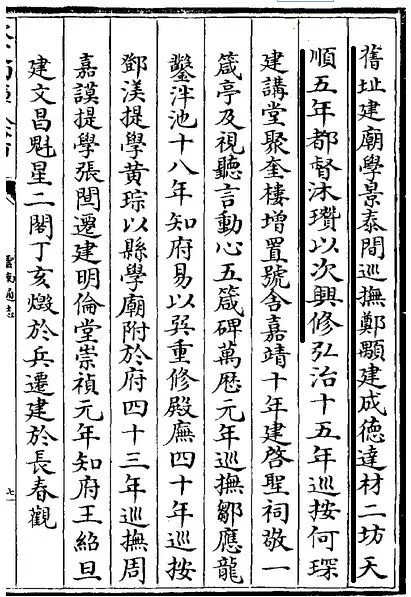 舊址建廟學景泰間巡撫鄭顒建成德達材二坊天
順五年都督沐瓚以次興修弘治十五年巡按何琛
建講堂聚奎樓增置號舍嘉靖十年建啓聖祠敬一
箴亭及視聽言動心五箴碑萬歷元年巡撫鄒應龍
鑿泮池十八年知府易以巽重修殿廡四十年巡按
鄧渼提學黃琮以縣學廟附於府四十三年巡撫周
嘉謨提學張聞遷建明倫堂崇禎元年知府王紹旦
建文昌魁星二閣丁亥燬於兵遷建於長春觀
雲南通志
七